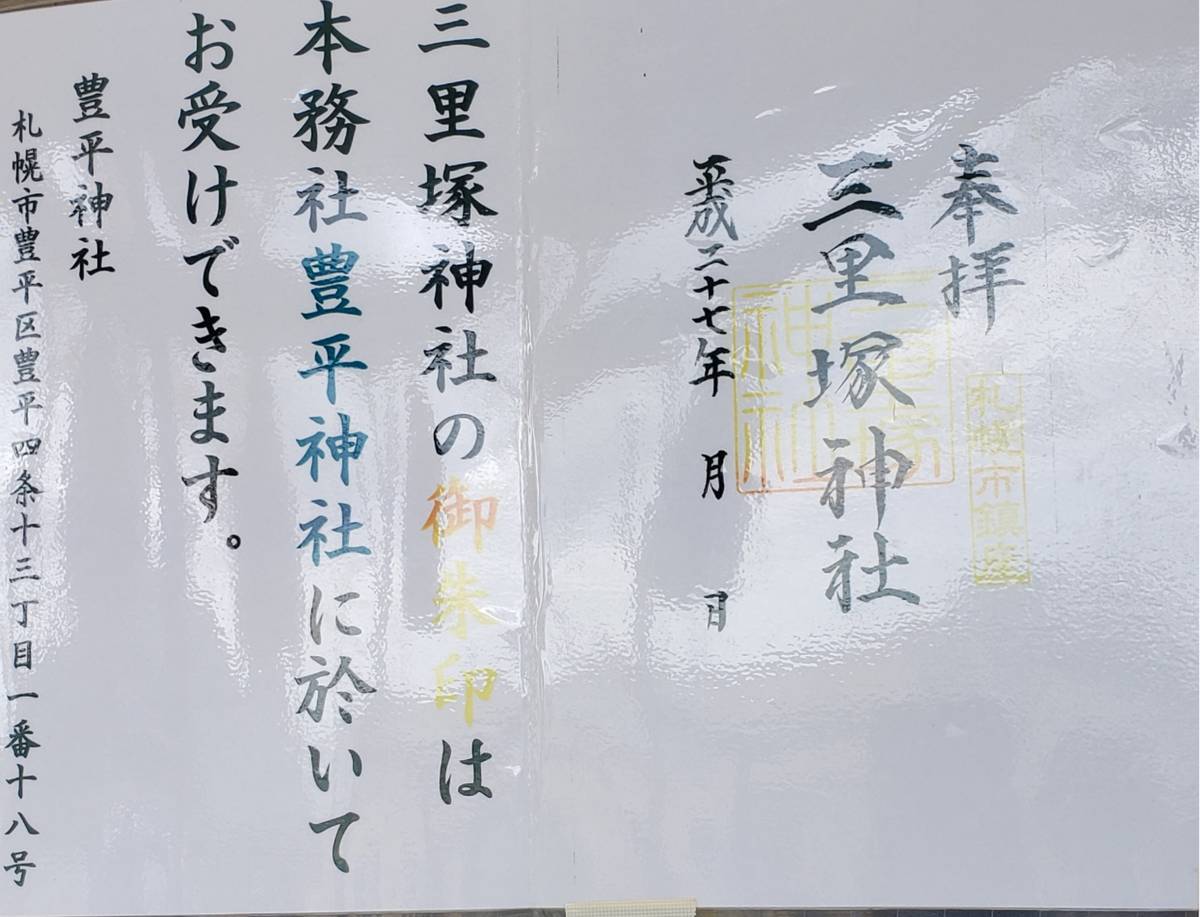 奉拝
札幌市鎮座
三里塚神社
三里塚神社
平成二十七年 月 日
三里塚神社の御朱印は
本務社豊平神社に於いて
お受けできます。
豊平神社
札幌市豊平区豊平四条十三丁目一番十八号